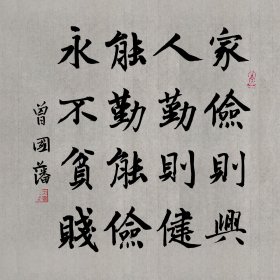 家儉則興
人勤則健
能勤能儉
永不貧賤
曾國藩